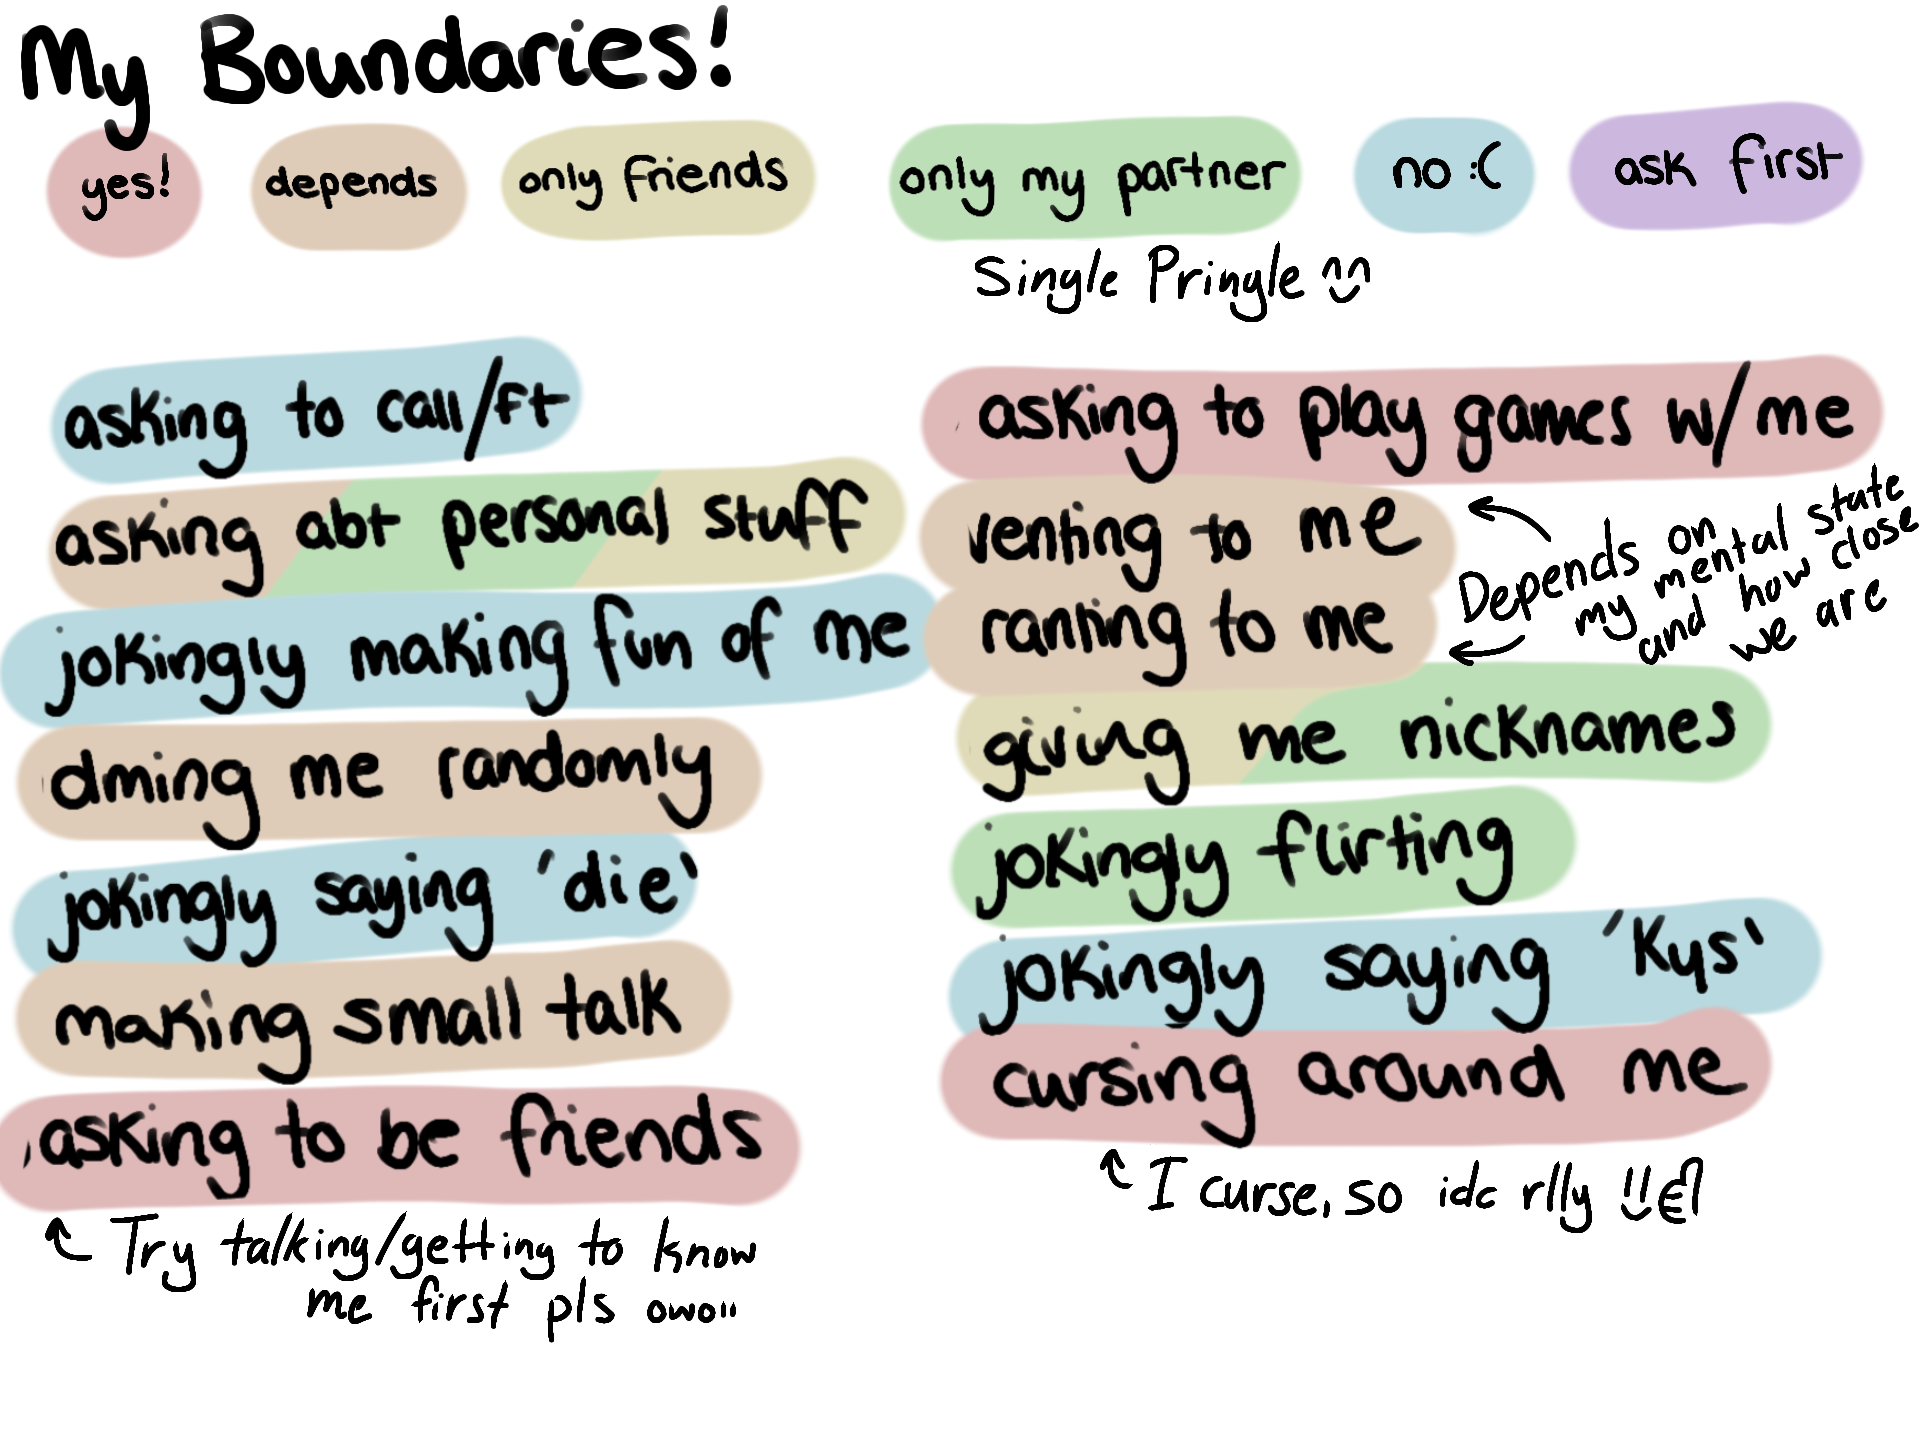 My Boundaries!
yes!
depends
only friends
only my partner
no :(
ask first
Single Pringle ^^
asking to call/ft
asking abt personal stuff
jokingly making fun of me
dming me randomly
jokingly saying 'die'
making small talk
asking to be friends
Try talking/getting to know
me first pls owo
asking to play games w/me
venting to me
ranting to me
Depends on
my mental state
and how close
we are
giving me nicknames
jokingly flirting
jokingly saying 'kys'
cursing around me
I curse, so idc rlly !!